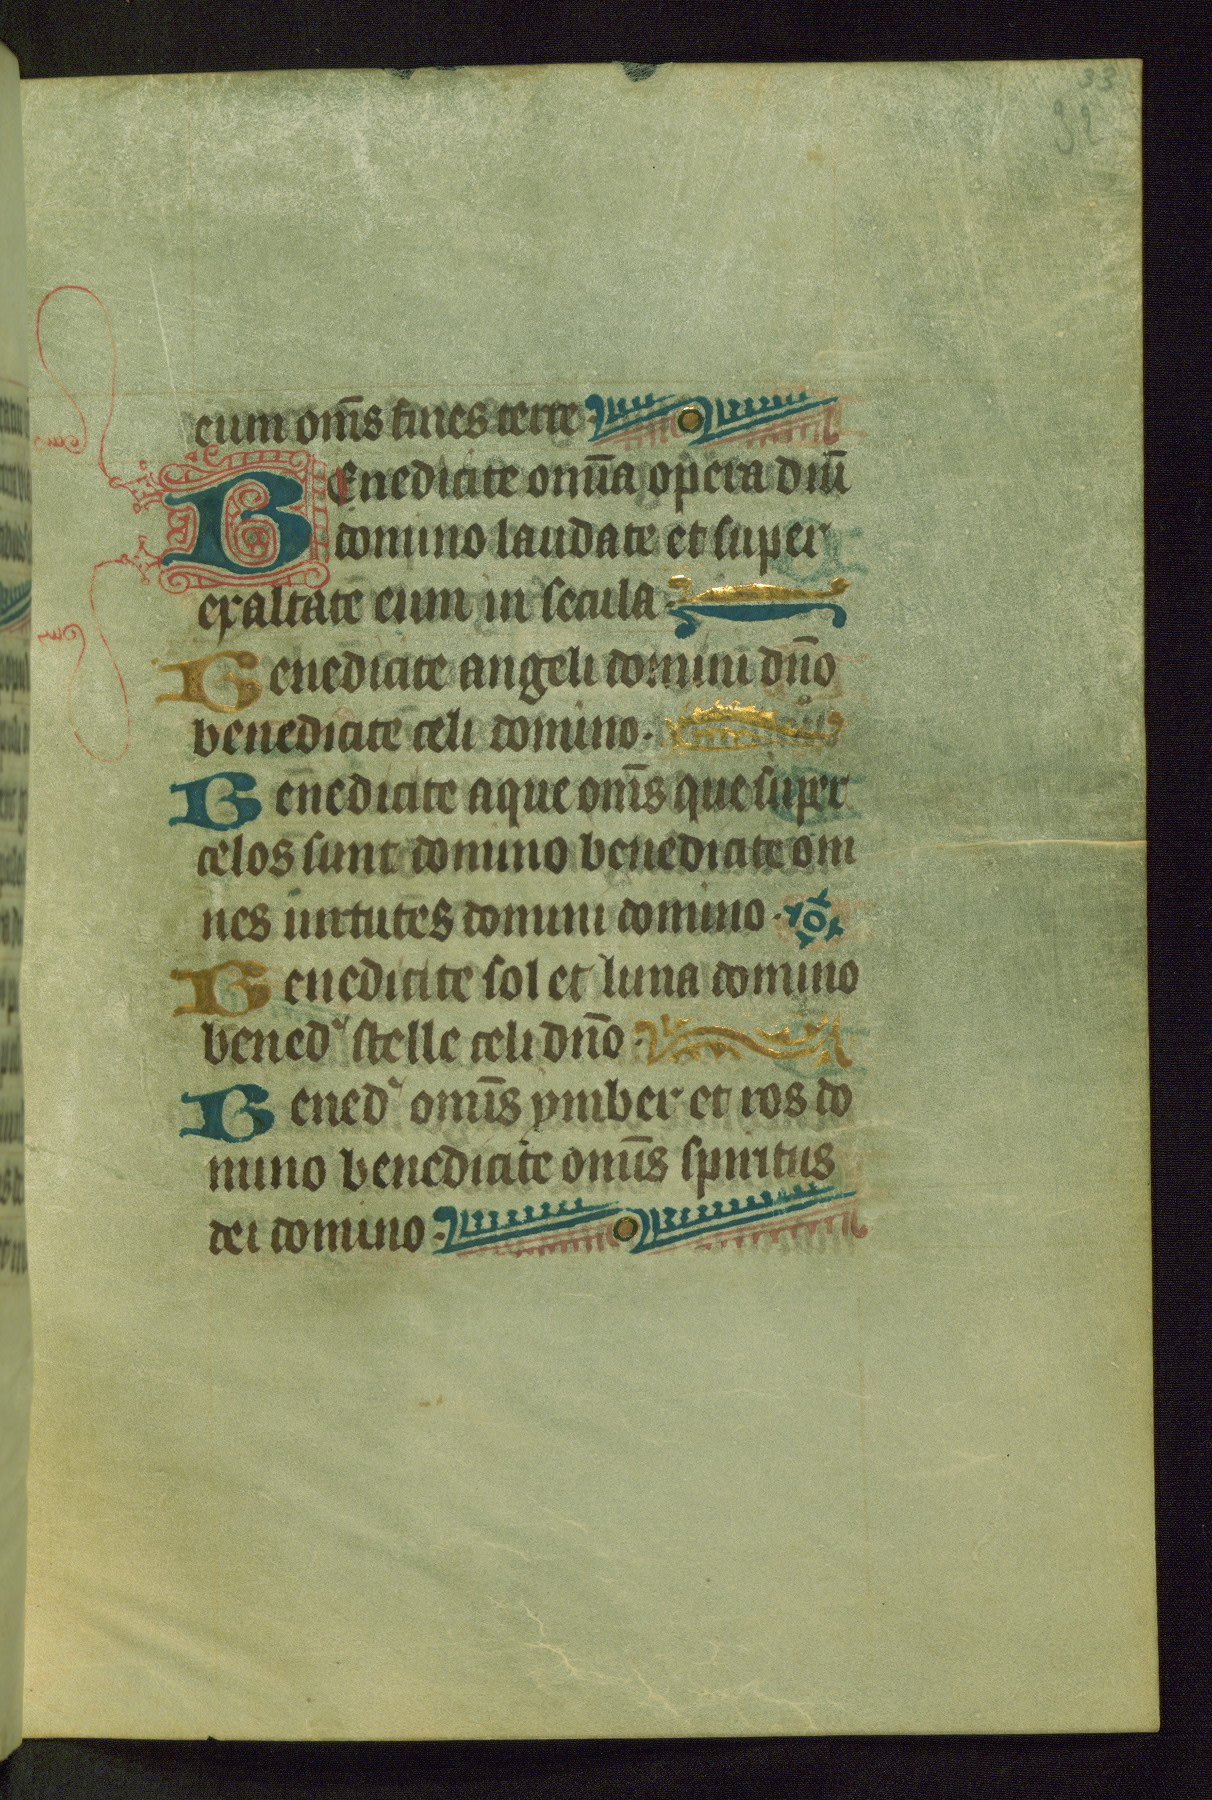 33
32
eum om̄s fines terre
Benedicite om̄ia opera dn̄i
domino laudate et super
exaltate eum in secula
Benedicite angeli domini dn̄o
benedicite celi domino.
Benedicite aque om̄s que super
celos sunt domino benedicite om
nes uirtutes domini domino.
Benedicite sol et luna domino
bened' stelle celi dn̄o
Bened' omīs ymber et ros do
mino benedicite om̄s spiritus
dei domino.